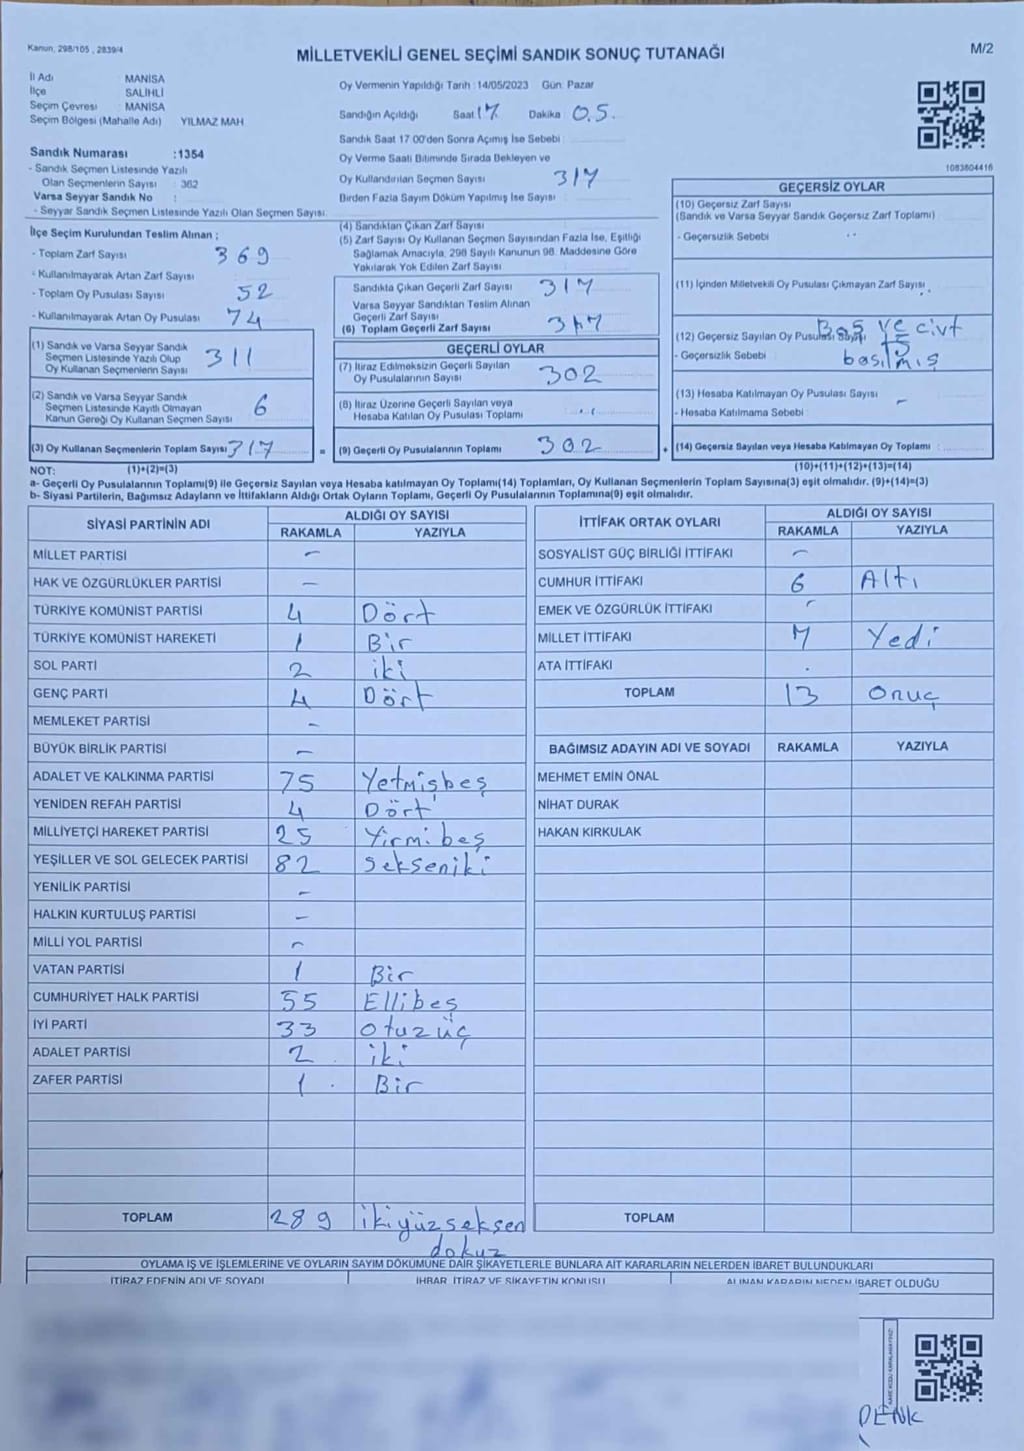 Kanun, 298/105 , 2839/4
MİLLETVEKİLİ GENEL SEÇİMİ SANDIK SONUÇ TUTANAĞI
M/2
İl Adı MANİSA
İlçe SALİHLİ
Seçim Çevresi MANİSA
Seçim Bölgesi (Mahalle Adı) YILMAZ MAH.
Sandık Numarası :1354
- Sandık Seçmen Listesinde Yazılı
Olan Seçmenlerin Sayısı : 362
Varsa Seyyar Sandık No :
- Seyyar Sandık Seçmen Listesinde Yazılı Olan Seçmen Sayısı:
İlçe Seçim Kurulundan Teslim Alınan ;
- Toplam Zarf Sayısı 369
- Kullanılmayarak Artan Zarf Sayısı 52
- Toplam Oy Pusulası Sayısı
- Kullanılmayarak Artan Oy Pusulası 74
(1) Sandık ve Varsa Seyyar Sandık
Seçmen Listesinde Yazılı Olup
Oy Kullanan Seçmenlerin Sayısı 311
(2) Sandık ve Varsa Seyyar Sandık
Seçmen Listesinde Kayıtlı Olmayan
Kanun Gereği Oy Kullanan Seçmen Sayısı 6
(3) Oy Kullanan Seçmenlerin Toplam Sayısı 317
Oy Vermenin Yapıldığı Tarih : 14/05/2023 Gün: Pazar
Sandığın Açıldığı Saat 17 Dakika 05.
Sandık Saat 17:00'den Sonra Açımış İse Sebebi
Oy Verme Saati Bitiminde Sırada Bekleyen ve
Oy Kullandırılan Seçmen Sayısı 317
Birden Fazla Sayım Döküm Yapılmış İse Sayısı
(4) Sandıktan Çıkan Zarf Sayısı
(5) Zarf Sayısı Oy Kullanan Seçmen Sayısından Fazla İse, Eşitliği
Sağlamak Amacıyla, 298 Sayılı Kanunun 98. Maddesine Göre
Yakılarak Yok Edilen Zarf Sayısı
Sandıkta Çıkan Geçerli Zarf Sayısı 317
Varsa Seyyar Sandıktan Teslim Alınan
Geçerli Zarf Sayısı
(6) Toplam Geçerli Zarf Sayısı 317
GEÇERLİ OYLAR
(7) İtiraz Edilmeksizin Geçerli Sayılan
Oy Pusulalarının Sayısı 302
(8) İtiraz Üzerine Geçerli Sayılan veya
Hesaba Katılan Oy Pusulası Toplamı
= (9) Geçerli Oy Pusulalarının Toplamı 302
1083604416
GEÇERSİZ OYLAR
(10) Geçersiz Zarf Sayısı
(Sandık ve Varsa Seyyar Sandık Geçersiz Zarf Toplamı)
- Geçersizlik Sebebi
(11) İçinden Milletvekili Oy Pusulası Çıkmayan Zarf Sayısı
(12) Geçersiz Sayılan Oy Pusulası Sayısı 15
- Geçersizlik Sebebi Boş ve civt
basılmış
(13) Hesaba Katılmayan Oy Pusulası Sayısı -
- Hesaba Katılmama Sebebi
+ (14) Geçersiz Sayılan veya Hesaba Katılmayan Oy Toplamı
NOT: (1)+(2)=(3) (10)+(11)+(12)+(13)=(14)
a- Geçerli Oy Pusulalarının Toplamı(9) ile Geçersiz Sayılan veya Hesaba katılmayan Oy Toplamı(14) Toplamları, Oy Kullanan Seçmenlerin Toplam Sayısına(3) eşit olmalıdır. (9)+(14)=(3)
b- Siyasi Partilerin, Bağımsız Adayların ve İttifakların Aldığı Ortak Oyların Toplamı, Geçerli Oy Pusulalarının Toplamına(9) eşit olmalıdır.
SİYASİ PARTİNİN ADI ALDIĞI OY SAYISI
RAKAMLA YAZIYLA
MİLLET PARTİSİ -
HAK VE ÖZGÜRLÜKLER PARTİSİ -
TÜRKİYE KOMÜNİST PARTİSİ 4 Dört
TÜRKİYE KOMÜNİST HAREKETİ 1 Bir
SOL PARTİ 2 iki
GENÇ PARTİ 4 Dört
MEMLEKET PARTİSİ -
BÜYÜK BİRLİK PARTİSİ -
ADALET VE KALKINMA PARTİSİ 75 Yetmişbeş
YENİDEN REFAH PARTİSİ 4 Dört
MİLLİYETÇİ HAREKET PARTİSİ 25 Yirmibeş
YEŞİLLER VE SOL GELECEK PARTİSİ 82 Sekseniki
YENİLİK PARTİSİ -
HALKIN KURTULUŞ PARTİSİ -
MİLLİ YOL PARTİSİ -
VATAN PARTİSİ 1 Bir
CUMHURİYET HALK PARTİSİ 55 Ellibeş
İYİ PARTİ 33 Otuzüç
ADALET PARTİSİ 2 iki
ZAFER PARTİSİ 1 Bir
TOPLAM 289 ikiyüzseksen
dokuz
İTTİFAK ORTAK OYLARI ALDIĞI OY SAYISI
RAKAMLA YAZIYLA
SOSYALİST GÜÇ BİRLİĞİ İTTİFAKI -
CUMHUR İTTİFAKI 6 Altı
EMEK VE ÖZGÜRLÜK İTTİFAKI -
MİLLET İTTİFAKI 7 Yedi
ATA İTTİFAKI .
TOPLAM 13 Onuç
BAĞIMSIZ ADAYIN ADI VE SOYADI RAKAMLA YAZIYLA
MEHMET EMİN ÖNAL
NİHAT DURAK
HAKAN KIRKULAK
TOPLAM
OYLAMA İŞ VE İŞLEMLERİNE VE OYLARIN SAYIM DÖKÜMÜNE DAİR ŞİKAYETLERLE BUNLARA AİT KARARLARIN NELERDEN İBARET BULUNDUKLARI
İTİRAZ EDENİN ADI VE SOYADI İHBAR, İTİRAZ VE ŞİKAYETİN KONUSU ALINAN KARARIN NEDEN İBARET OLDUĞU